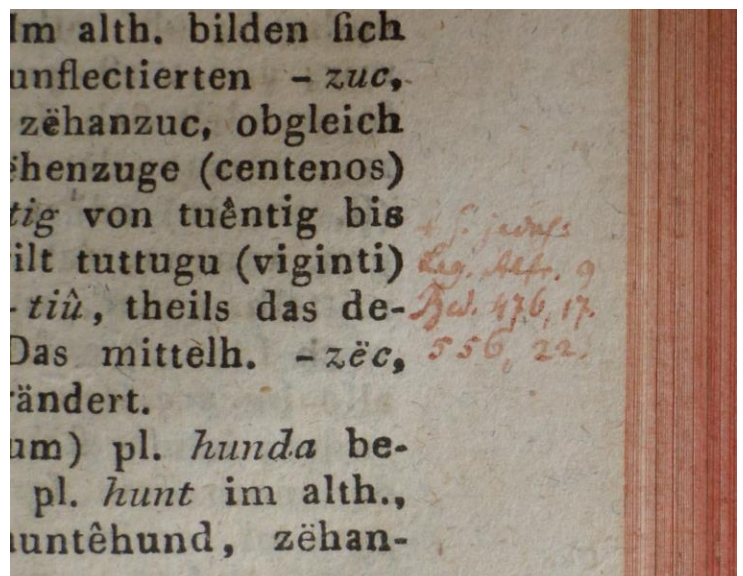 Im alth. bilden ſich
unflectierten – zuc,
zëhanzuc, obgleich
ëhenzuge (centenos)
tig von tuêntig bis
ilt tuttugu (viginti)
-tiû, theils das de-
Das mittelh. – zëc,
rändert.
um) pl. hunda be-
pl. hunt im alth.,
untêhund, zëhan-
Leg. Alfr. 9
476, 17.
556, 22.